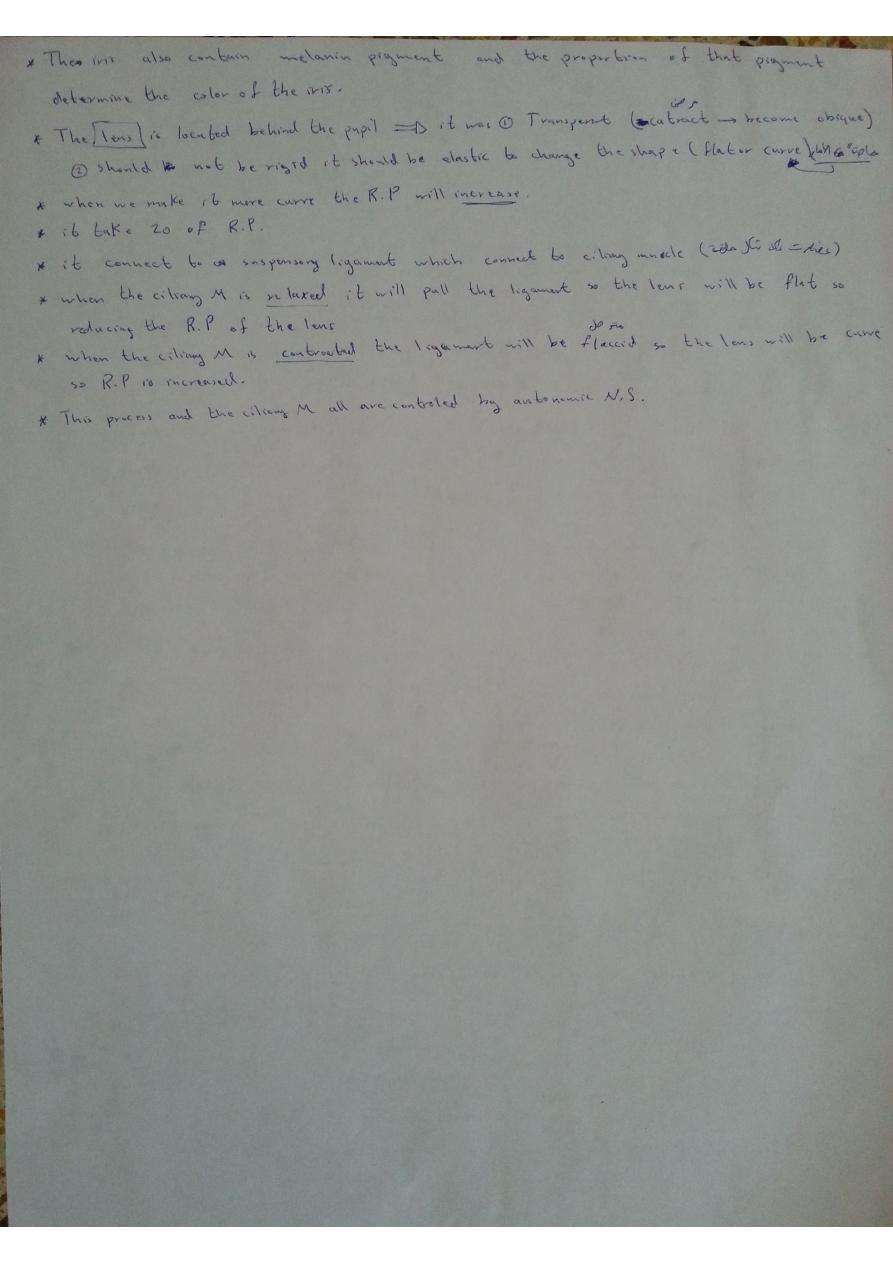 * The iris also contain melanin pigment and the proportion of that pigment
determine the color of the iris.
مرض
* The lens is located behind the pupil ⇒ it was ① Transperent (catract → become obique)
② should not be rigid it should be elastic to change the shape (flat or curve)
* when we make it more curve the R.P will increase.
* it take 20 of R.P.
* it connect to suspensory ligament which connect to ciliary muscle (عضلة على شكل حلقة =)
* when the ciliary M is relaxed it will pull the ligamant so the lens will be flat so
reducing the R.P of the lens
* when the ciliary M is contracted the ligamart will be flaccid so the lens will be curve
so R.P is increased.
* This process and the ciliary M all are controled by autonomic N.S.